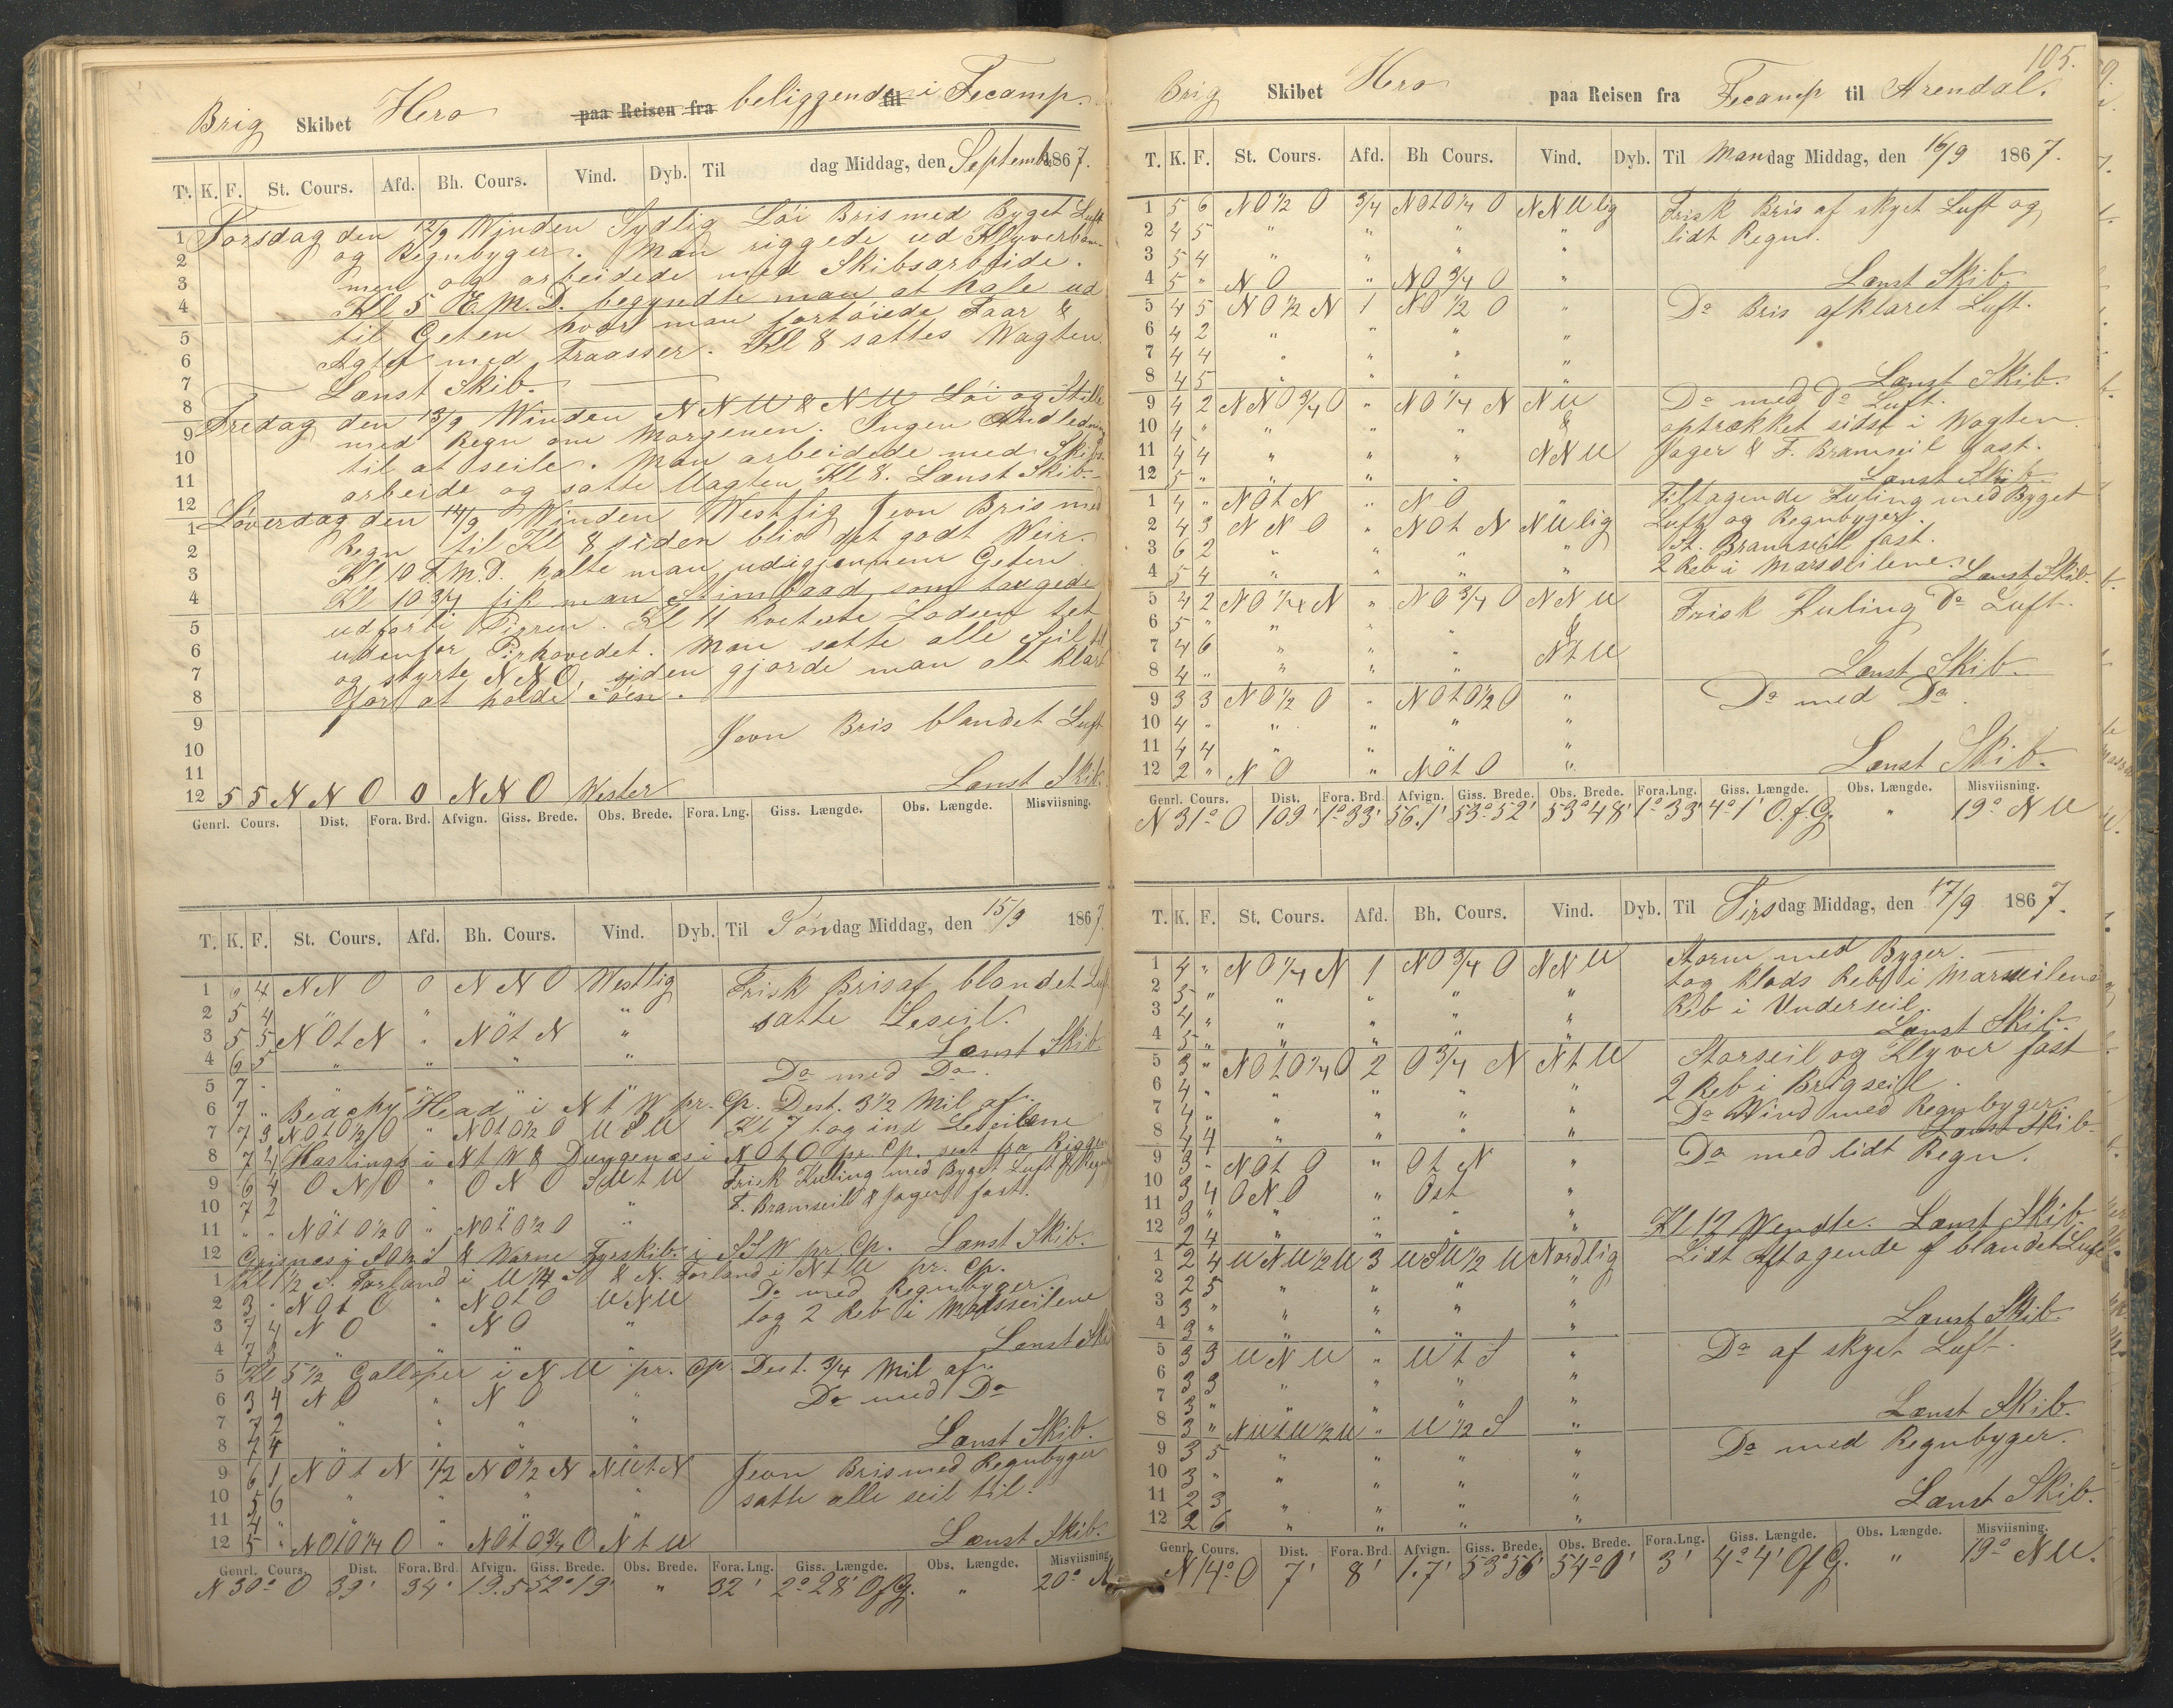 Brig Skibet Hero paa Reisen fra beliggende til i Fecamp.
T. K. F. St. Cours. Afd. Bh. Cours. Vind. Dyb. Til dag Middag, den September 1867.
Torsdag den 12/9 Winden Sydlig Löi Bris med Byget Luft
og Regnbyger. Man riggede ud Klyverbom-
men og arbeidede med Skibsarbeide.
Kl 5 E.M.D. begyndte man at hale ud
til Geten hvor man fortöiede Faar &
Agter med Traasser. Kl 8 sattes Wagten.
Lænst Skib.
Fredag den 13/9 Winden N N W & N W Löi og Stille
med Regn om Morgenen. Ingen Anledning
til at seile. Man arbeidede med Skibs-
arbeide og satte Wagten Kl 8. Lænst Skib.
Löverdag den 14/9 Winden Westlig Jevn Bris med
Regn til Kl 8 siden blev det godt Weir.
Kl 10 F.M.D. halte man ud igjennem Geten
Kl 10 3/4 fik man Stimbaad som taugede
ud forbi Pieren. Kl 11 Lodsen tet
udenfor Pirhovedet. Man satte alle Seil til
og styrte N N O, siden gjorde man alt klart
for at holde Söen.
Jevn Bris blandet Luft
Lænst Skib.
12 5 5 N N O 0 N N O Wester
Genrl. Cours. Dist. Fora. Brd. Afvign. Giss. Brede. Obs. Brede. Fora. Lng. Giss. Længde. Obs. Længde. Misviisning.
T. K. F. St. Cours. Afd. Bh. Cours. Vind. Dyb. Til Söndag Middag, den 15/9 1867.
1 4 N N O 0 N N O Westlig Frisk Bris af blandet Luft
2 5 4 " " satte Leseil.
3 5 5 N O t N " N O t N "
4 6 5 " " " Lænst Skib
5 7 " Do med Do.
6 7 " Beachy Head i N t W pr. Cp. Dest. 3 1/2 Mil af.
7 7 3 N O t O 1/2 O " N O t O 1/2 O W S W Kl 7 tog ind Leseilene
8 7 4 Hastings i N t W & Dungenæs i N O t O pr. Cp. sest fra Riggen
9 6 4 O N O " O N O S W t W Frisk Kuling med Byget Luft & Regn
10 7 2 " " F. Bramseil & Jager fast.
11 " " N O t O 1/2 O " N O t O 1/2 O " Lænst Skib.
12 Grisnes i & Varne Fyrskib i S S W pr. Cp.
1 Kl 1/2 S. Forland i W 1/4 S & N. Forland i N t W pr. Cp.
2 3 " N O t O " N O t O W N W Do med Regnbyger
3 7 4 N O " N O " tog 2 Reb i Mersseilene
4 7 3 " " " Lænst Skib
5 Kl 5 1/2 Galloper i N W pr. Cp. Dest. 3/4 Mil af.
6 3 4 N O " N O " Do med Do
7 7 2 " " " "
8 7 4 " " " " Lænst Skib.
9 6 1 N O t N 1/2 N O 1/2 N N W t N Jevn Bris med Regnbyger
10 5 6 " " " " satte alle seil til.
11 4 " " " " "
12 5 " N O t O 1/4 O " N O t O 3/4 O N t W Lænst Skib.
Genrl. Cours. Dist. Fora. Brd. Afvign. Giss. Brede. Obs. Brede. Fora. Lng. Giss. Længde. Obs. Længde. Misviisning.
N 30° O 39' 34' 19.5 52° 19' " 32' 2° 28' O f G. " 20° N
105.
Brig Skibet Hero paa Reisen fra Fecamp til Arendal.
T. K. F. St. Cours. Afd. Bh Cours. Vind. Dyb. Til Mandag Middag, den 16/9 1867.
1 5 6 N O 1/2 O 3/4 N O t O 1/4 O N N W lig Frisk Bris af skyet Luft og
2 4 5 " " " " lidt Regn.
3 5 4 " " " "
4 5 " N O " N O 3/4 O " Lænst Skib
5 4 5 N O 1/2 N 1 N O 1/2 O " Do Bris af klaret Luft.
6 4 2 " " " "
7 4 4 " " " "
8 4 5 " " " " Lænst Skib.
9 4 2 N N O 3/4 O " N O 1/4 N N W Do med do Luft.
10 4 " " " " & optrækket sidst i Wagten.
11 4 4 " " " N N W Jager & F. Bramseil fast.
12 5 " " " " Lænst Skib
1 4 " N O t N " N O " Tiltagende Kuling med Byget
2 4 3 N N O " N O t N N W lig Luft og Regnbyger.
3 6 2 " " " " St. Bramseil fast.
4 5 4 " " " " 2 Reb i Marsseilene. Lænst Skib.
5 4 2 N O 1/4 N " N O 3/4 O N N W Frisk Kuling Do Luft.
6 5 " " " " &
7 4 6 " " " N t W
8 4 " " " " Lænst Skib.
9 3 3 N O 1/2 O " N O t O 1/2 O " Do med Do.
10 4 " " " " "
11 4 4 " " " "
12 2 " N O " N O t O " Lænst Skib.
Genrl. Cours. Dist. Fora. Brd. Afvign. Giss. Brede. Obs. Brede. Fora. Lng. Giss. Længde. Obs. Længde. Misviisning.
N 31° O 109' 1° 33' 56.1' 53° 52' 53° 48' 1° 33' 4° 1' O. f. G. " 19° N W
T. K. F. St. Cours. Afd. Bh. Cours. Vind. Dyb. Til Tirsdag Middag, den 17/9 1867.
1 4 " N O 1/4 N 1 N O 3/4 O N N W Storm med Byger.
2 5 " " " " " tog Klods Reb i Marsseilene
3 4 " " " " " Reb i Underseil.
4 5 " " " " " Lænst Skib.
5 3 " N O t O 1/4 O 2 O 3/4 N N t W Storseil og Klyver fast
6 4 " " " " " 2 Reb i Brigseil.
7 4 " " " " " Do Wind med Regnbyger
8 4 4 " " " " Lænst Skib.
9 3 " N O t O " O t N " Do med lidt Regn.
10 3 4 O N O " Ost "
11 3 " " " " "
12 2 4 " " " " Kl 12 Wendte. Lænst Skib
1 2 4 W N W 1/2 W 3 W S W 1/2 W Nordlig Lidt Aftagende af blandet Luft
2 2 5 " " " "
3 3 " " " " "
4 3 " " " " " Lænst Skib.
5 3 3 W N W " W t S " Do af skyet Luft.
6 3 3 " " " "
7 3 " " " " "
8 3 " N W t W 1/2 W " W 1/2 S " Lænst Skib.
9 3 5 " " " " Do med Regnbyger.
10 3 " " " " "
11 2 3 " " " "
12 2 6 " " " " Lænst Skib.
Genrl. Cours. Dist. Fora. Brd. Afvign. Giss. Brede. Obs. Brede. Fora. Lng. Giss. Længde. Obs. Længde. Misviisning.
N 14° O 7' 8' 1.7' 53° 56' 54° 0' 3' 4° 4' O f G. " 19° N W.